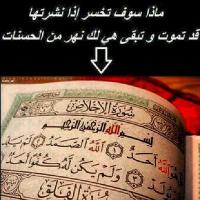 ماذا سوف تخسر إذا نشرتها
قد تموت و تبقى هي لك نهر من الحسنات
سورة الإخلاص
بسم الله الرحمن الرحيم
هو الله أحد ١ الله الصمد ٢ لم يلد
ولم يكن له كفوا
سورة الفلق